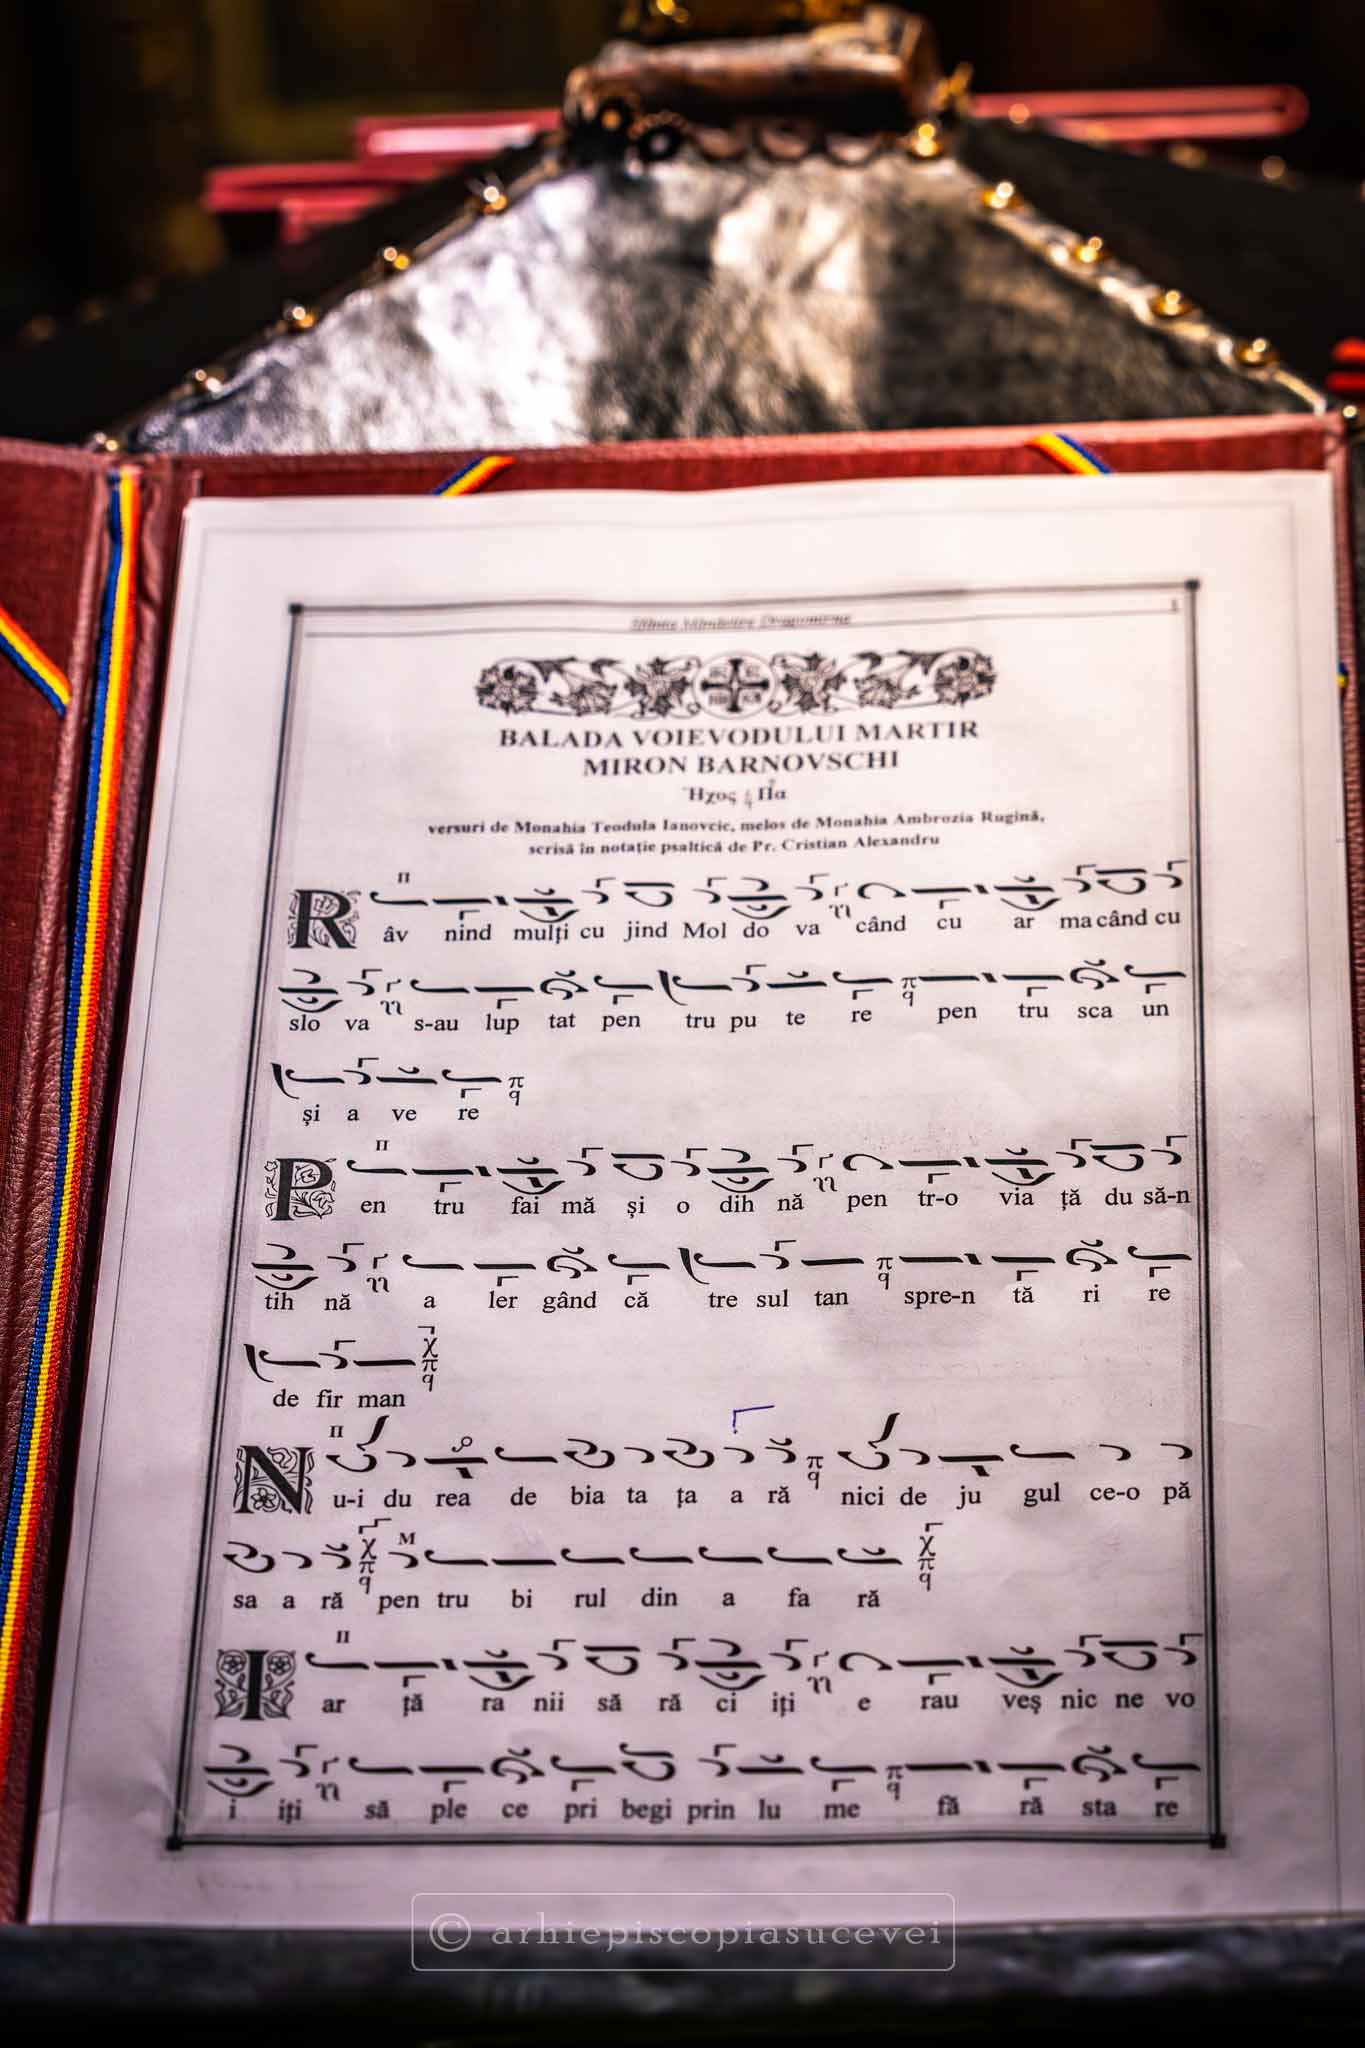 Sfânta Mănăstire Dragomirna 1
BALADA VOIEVODULUI MARTIR
MIRON BARNOVSCHI
Ἦχος Πα
versuri de Monahia Teodula Ianovcic, melos de Monahia Ambrozia Rugină,
scrisă în notație psaltică de Pr. Cristian Alexandru
R âv nind mulți cu jind Mol do va când cu ar ma când cu
slo va s-au lup tat pen tru pu te re pen tru sca un
și a ve re
P en tru fai mă și o dih nă pen tr-o via ță du să-n
tih nă a ler gând că tre sul tan spre-n tă ri re
de fir man
N u-i du rea de bia ta ța a ră nici de ju gul ce-o pă
sa a ră pen tru bi rul din a fa ră
I ar ță ra nii să ră ci iți e rau veș nic ne vo
i iți să ple ce pri begi prin lu me fă ră sta re
© arhiepiscopiasucevei